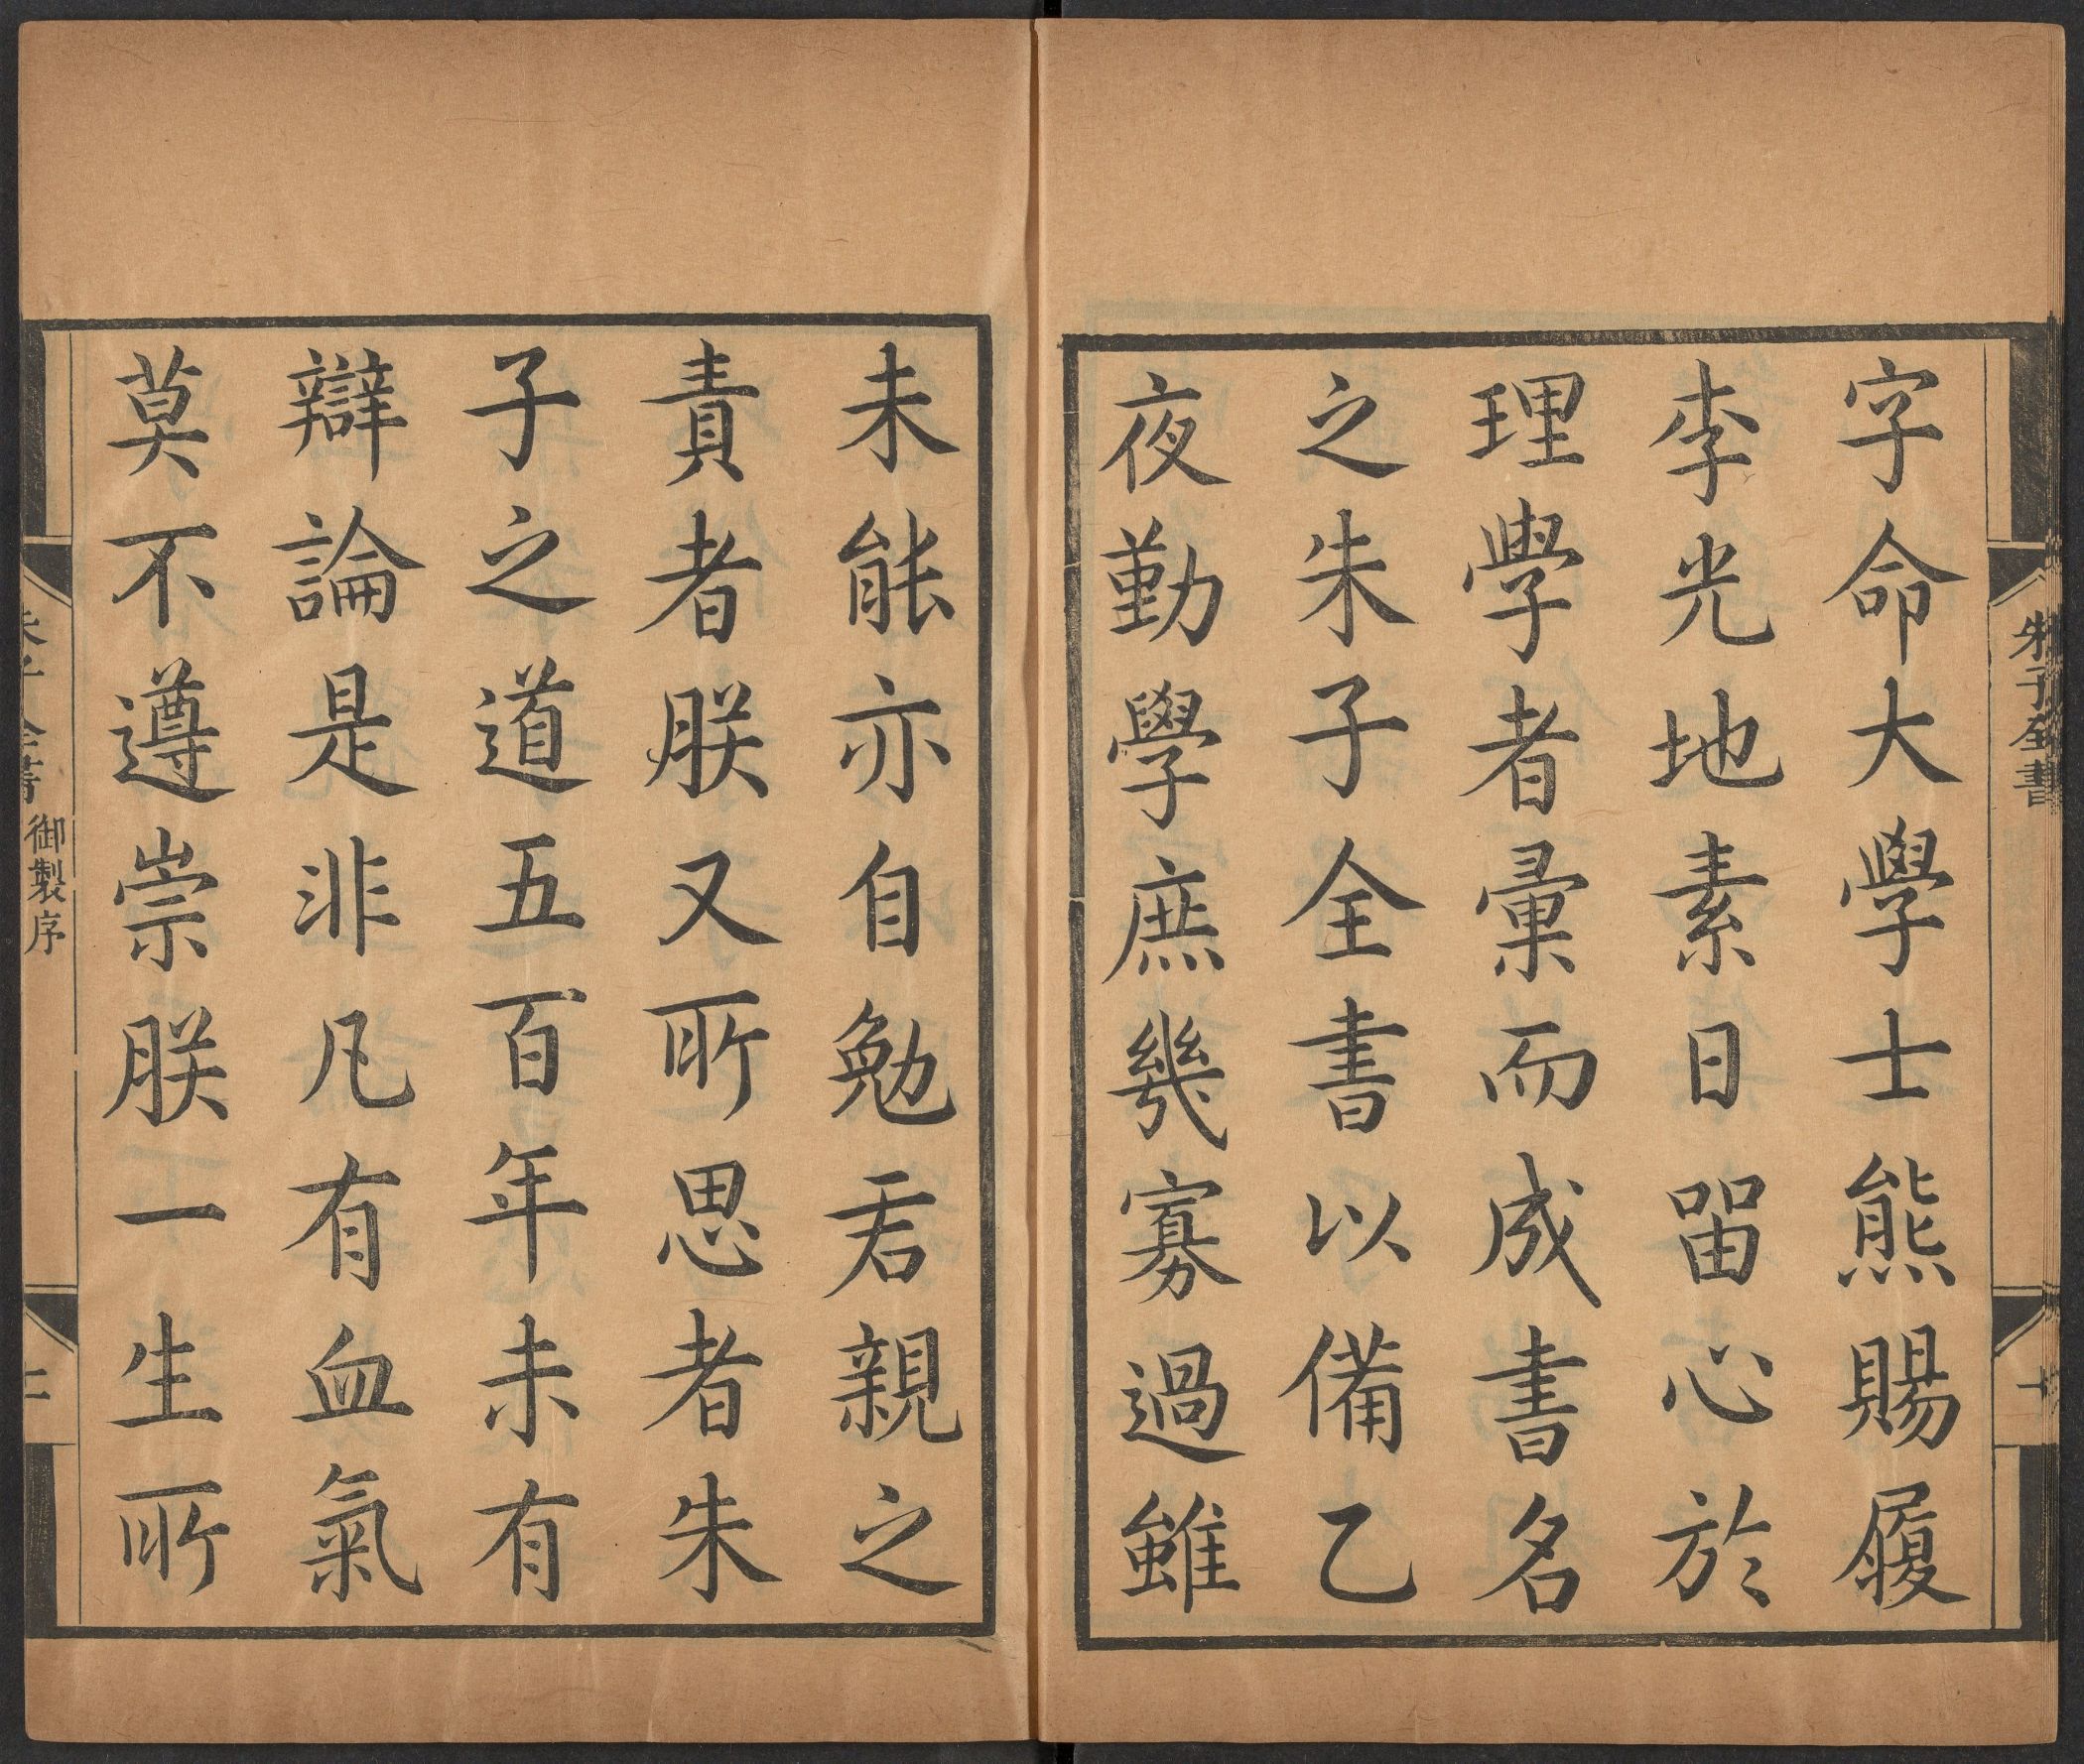 朱子全書
字命大學士熊賜履
李光地素日留心於
理學者彙而成書名
之朱子全書以備乙
夜勤學庶幾寡過雖
未能亦自勉君親之
責者朕又所思者朱
子之道五百年未有
辯論是非凡有血氣
莫不遵崇朕一生所
朱子全書
御製序